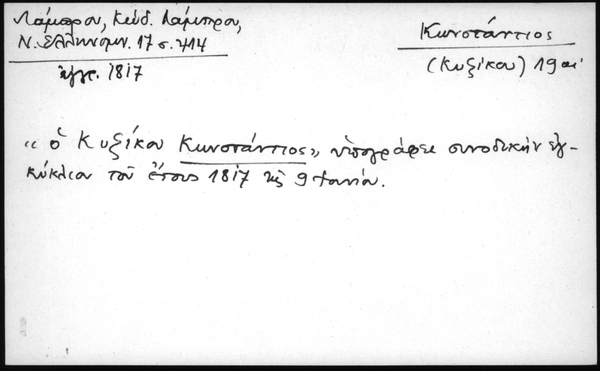 Λάμπρου, Κώδ. Λάμπρου,
Ν. Ελληνομν. 17 σ. 414
ἔγγρ. 1817
Κωνστάντιος
(Κυζίκου) 19 αἰ
« ὁ Κυζίκου Κωνστάντιος», ὑπογράφει συνοδικὴν ἐγ-
κύκλιον τοῦ ἔτους 1817 τῆς 9 Ἰουνίου.